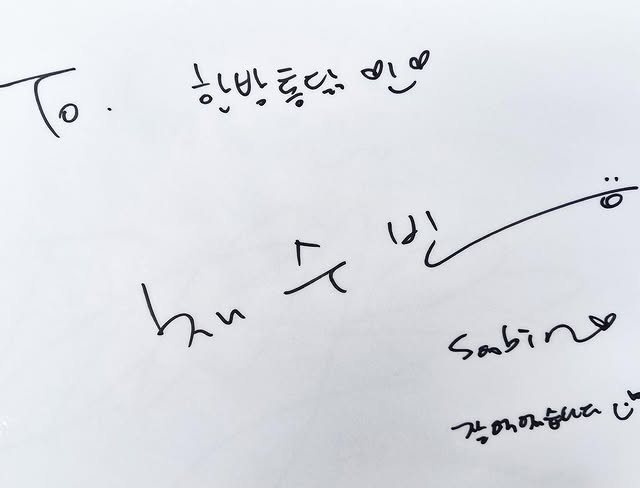 To. 한방통닭
수빈
Soobin♡
잘 먹었습니다